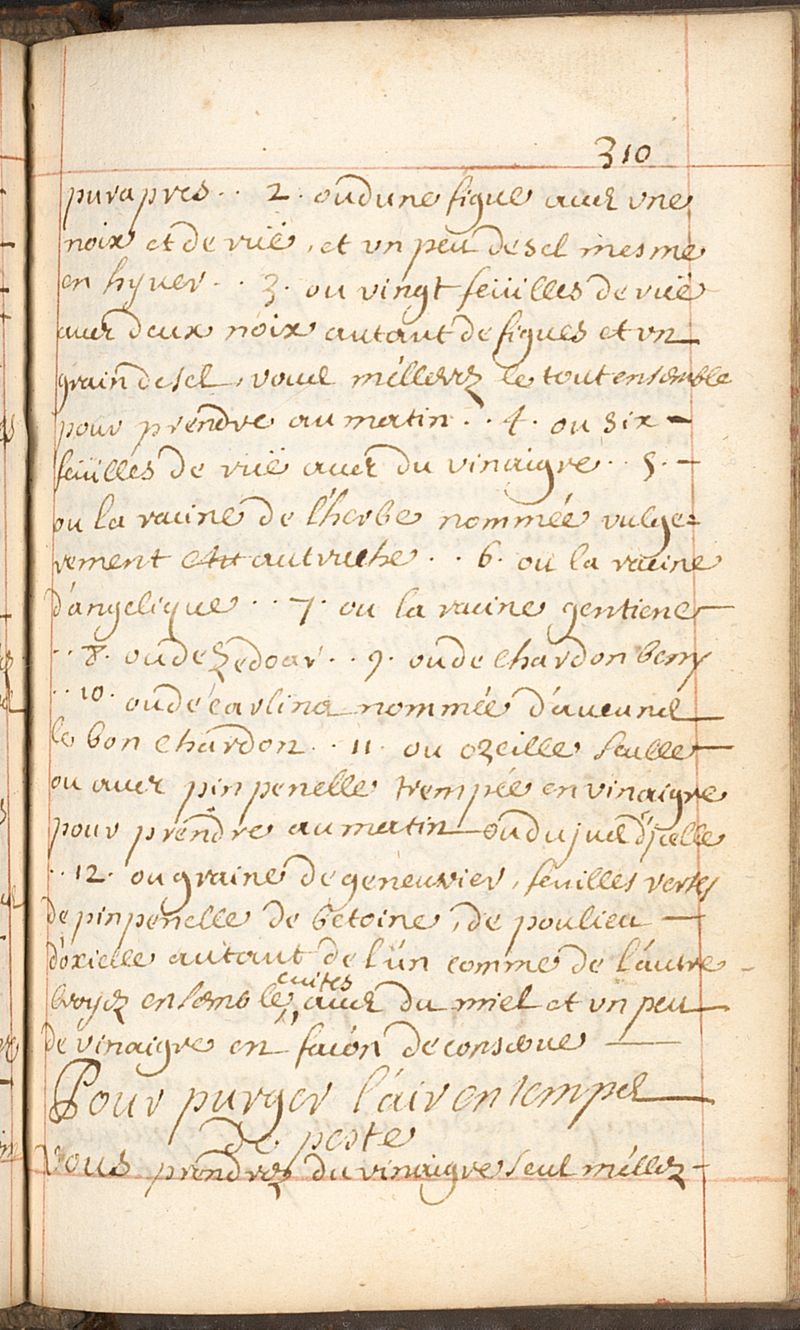 310
pur apres . . 2 . ou d'une figue avec une
noix et de ruë, et un peu de sel mesme
en hyver . . 3 . ou vingt feüilles de ruë
avec deux noix autant de figues et un
grain de sel, vous méllerez le tout ensemble
pour prendre au matin . . 4 . ou six
feüilles de ruë avec du vinaigre . . 5 .
ou la racine de l'herbe nommée vulge=
rement autruche . . 6 . ou la racine
d'angelique . . 7 . ou la racine gentiene
. . 8 . ou de zedoar . . 9 . ou de chardon beny
. . 10 . ou de carlina nommée d'aucuns
le bon chardon . . 11 . ou ozeille seulle
ou avec pinpenelle trempée en vinaigre
pour prendre au matin ou du jus d'jcelle
. . 12 . ou graine de geneuvier, feuilles vertes
de pinpenelle de betoine, de poulieu
d'oxielle autant de l'un comme de l'autre
broyez ensemble, cuites avec du miel et un peu
de vinaigre en facon de conserve
Pour purger l'air en temps
de peste
Vous prendrez du vinaigre seul méllez